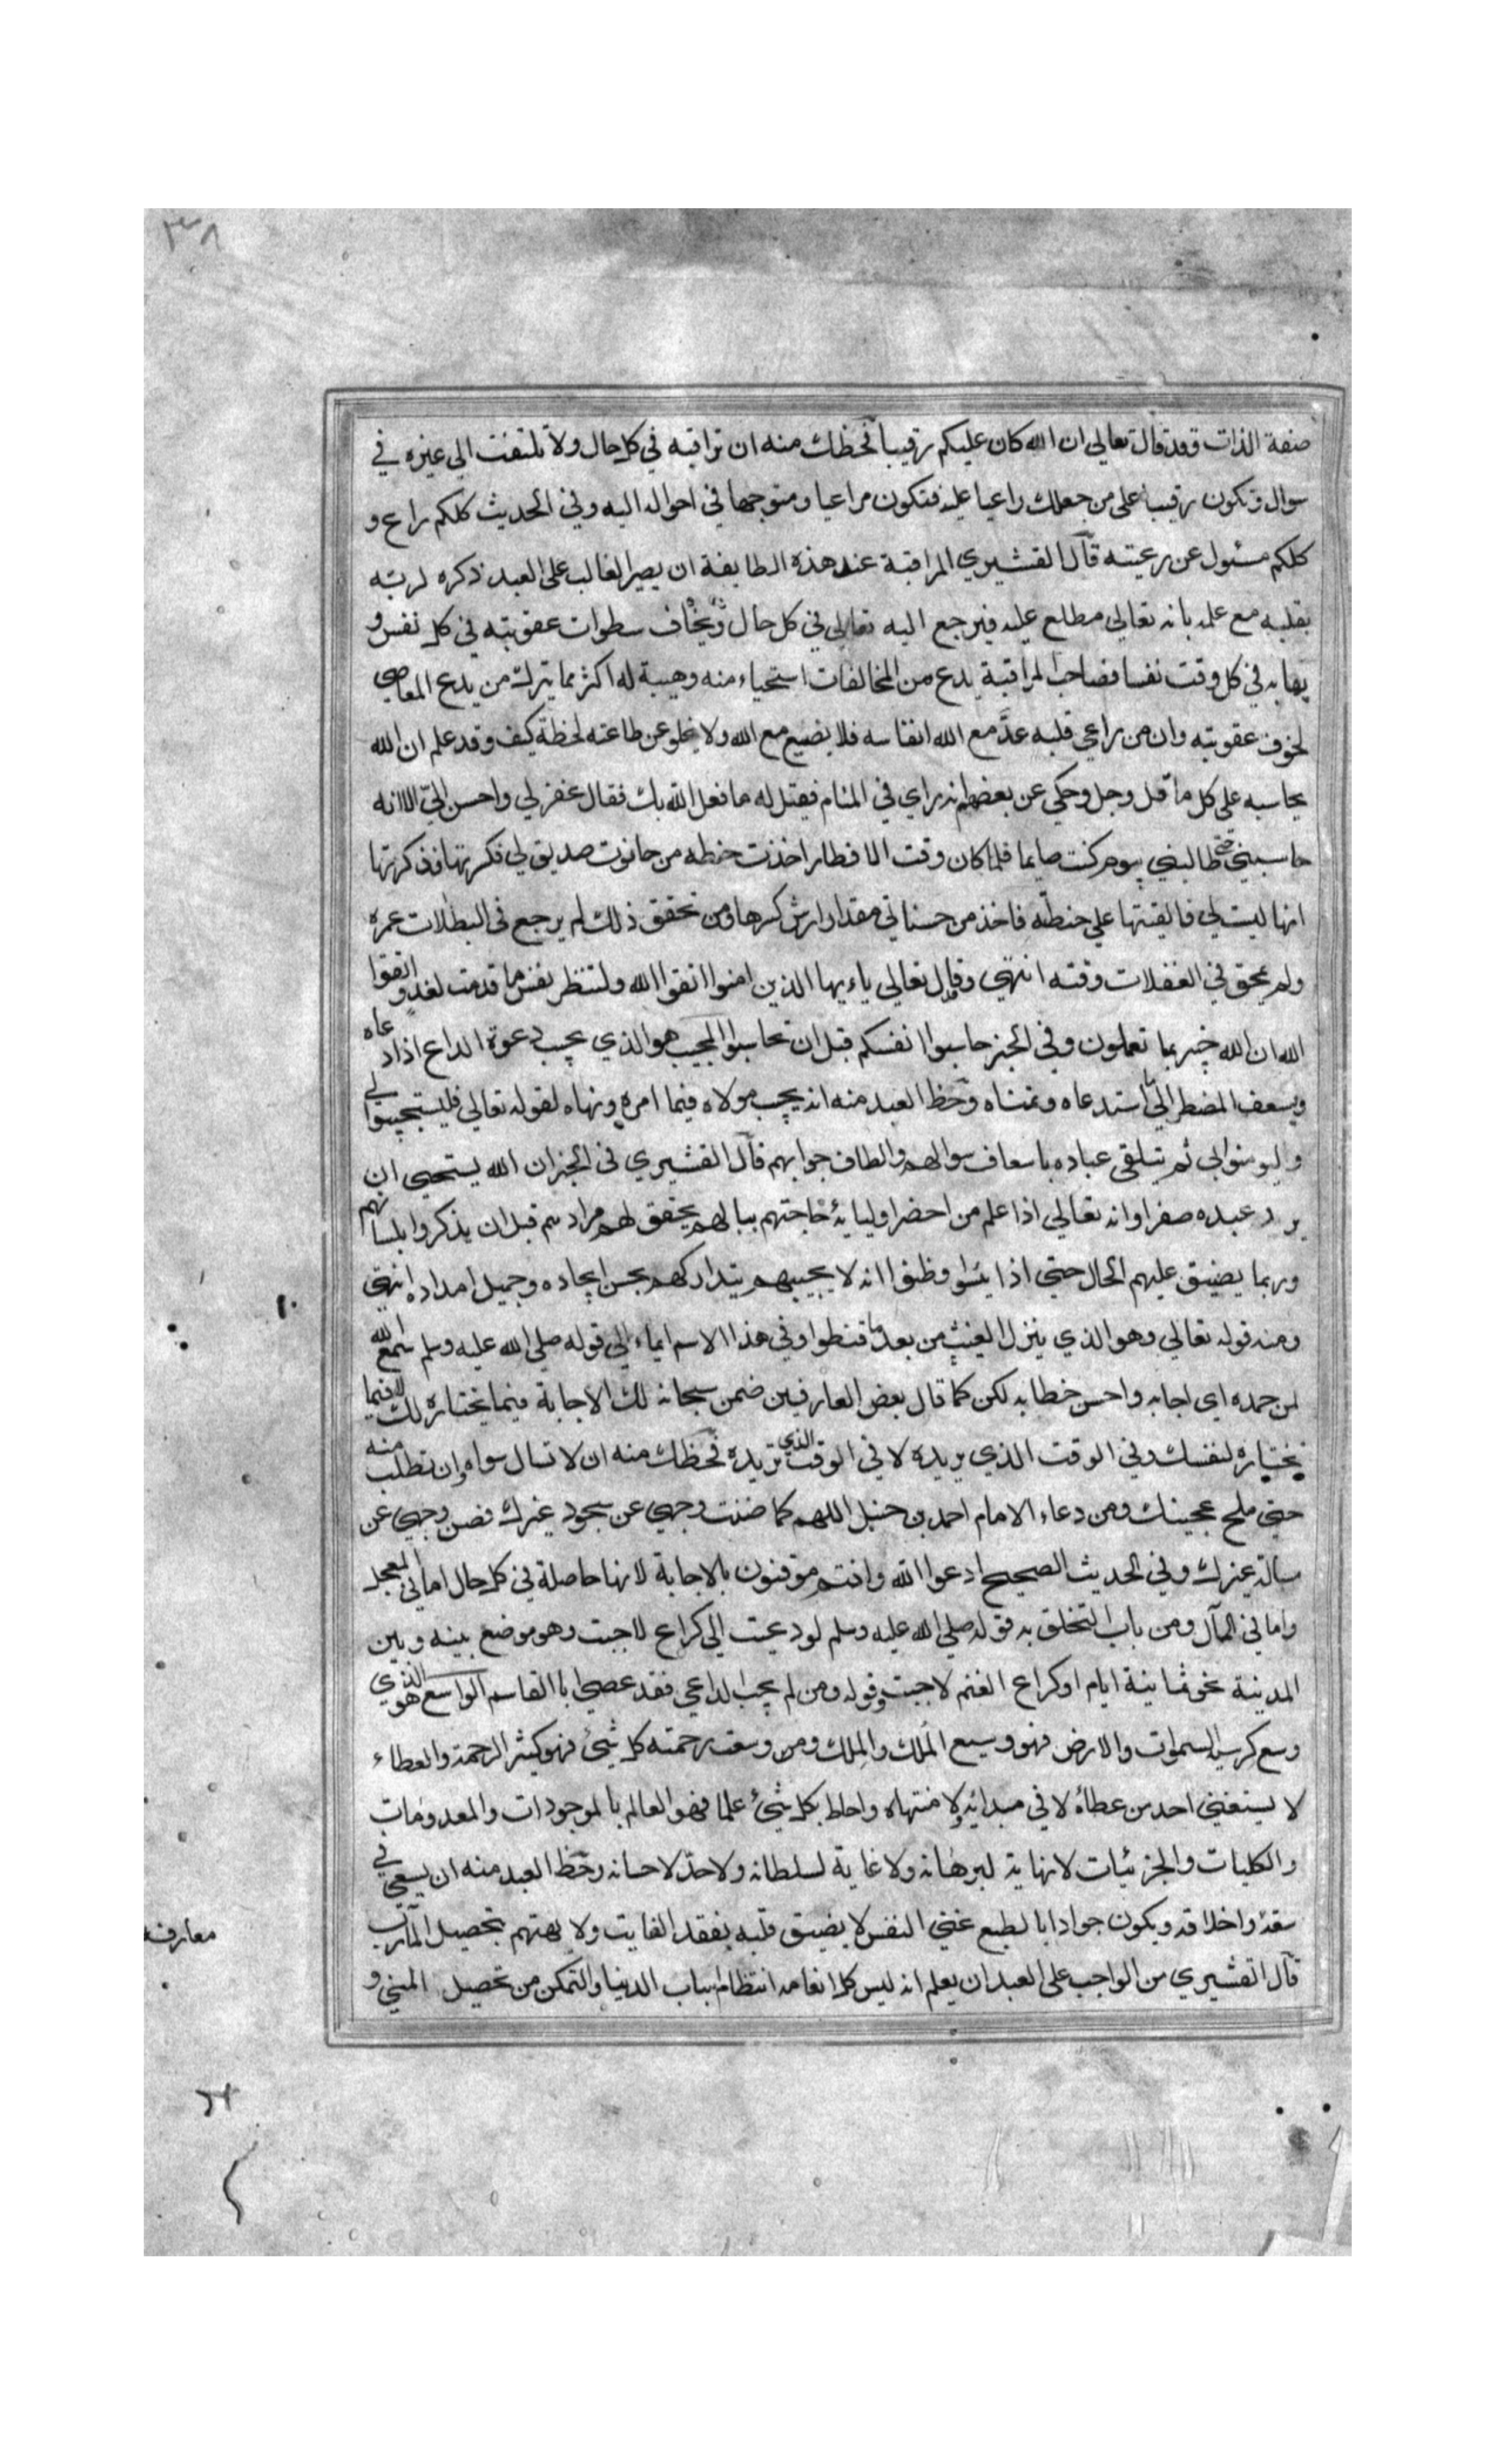 ٣٨
صفة الذات وقد قال تعالى ان الله كان عليكم رقيبا فحظك منه ان تراقبه في كل حال ولا تلتفت الى غيره في
سوال وتكون رقيبا على من جعلك راعيا عليه فتكون مراعيا ومتوجها في احواله اليه وفي الحديث كلكم راع و
كلكم مسئول عن رعيته قال القشيري المراقبة عند هذه الطايفة ان يصير الغالب على العبد ذكره لربّه
بقلبه مع علمه بانه تعالى مطلع عليه فيرجع اليه تعالى في كل حال ويخاف سطوات عقوبته في كل نفس و
يهابه في كل وقت نفسا فصاحب المراقبة يدع من المخالفات استحياء منه وهيبة له اكثر مما يترك من يدع المعاصي
لخوف عقوبته وان من راعى قلبه عدّ مع الله انفاسه فلا يضيع مع الله ولا يخلو عن طاعته لحظة كيف وقد علم ان الله
يحاسبه على كل ما قل وجل وحكي عن بعضهم انه راي في المنام فقيل له ما فعل الله بك فقال غفر لي واحسن اليّ الا انه
حاسبني حتى طالبني بيوم كنت صايما فلما كان وقت الافطار اخذت حنطه من حانوت صديق لي فكسرتها فذكرتها
انها ليست لي فالقيتها على حنطته فاخذ من حسناتي مقدار ارش كسرها ومن تحقق ذلك لم يرجع في البطالات عمره
ولم يمحق في الغفلات وقته انتهى وقال تعالى ياءيها الذين امنوا اتقوا الله ولتنظر نفس ما قدمت لغد واتقوا
الله ان الله خبير بما تعملون وفي الخبر حاسبوا انفسكم قبل ان تحاسبوا المجيب هو الذي يجيب دعوة الداع اذا دعاه
ويسعف المضطر الى ما استدعاه وتمناه وحظ العبد منه انه يجيب مولاه فيما امره ونهاه لقوله تعالى فليستجيبوا لي
وليومنوا بي ثم يتلقى عباده باسعاف سوالهم والطاف جوابهم قال القشيري في الخبر ان الله يستحيي ان
يرد عبده صفرا وانه تعالى اذا علم من احضر اوليائه حاجتهم ببالهم يحقق لهم مرادهم قبل ان يذكروا بلسانهم
وربما يضيق عليهم الحال حتى اذا يئسوا وظنوا انه لا يجيبهم يتداركهم بحسن ايجاده وجميل امداده انتهى
ومنه قوله تعالى وهو الذي ينزل الغيث من بعد ما قنطوا وفي هذا الاسم ايماء الى قوله صلى الله عليه وسلم سمع الله
لمن حمده اي اجابه واحسن خطابه لكن كما قال بعض العارفين ضمن سبحانه لك الاجابة فيما يختاره لك لا فيما
تختاره لنفسك وفي الوقت الذي يريده لا في الوقت الذي تريده فحظك منه ان لا تسال سواه وان تطلب منه
حتى ملح عجينك ومن دعاء الامام احمد بن حنبل اللهم كما صنت وجهي عن سجود غيرك فصن وجهي عن
مسالة غيرك وفي الحديث الصحيح ادعوا الله وانتم موقنون بالاجابة لانها حاصلة في كل حال اما في المعجل
واما في المآل ومن باب التخلق به قوله صلى الله عليه وسلم لو دعيت الى كراع لاجبت وهو موضع بينه وبين
المدينة نحو ثمانية ايام او كراع الغنم لاجبت وقوله ومن لم يجب الداعي فقد عصى ابا القاسم الواسع هو الذي
وسع كرسيه السموات والارض فهو وسيع المَلك والمِلك ومن وسعت رحمته كل شيئ فهو كثير الرحمة والعطاء
لا يستغني احد من عطائه لا في مبدائه ولا منتهاه واحاط بكل شيئ علما فهو العالم بالموجودات والمعدومات
والكليات والجزئيات لا نهاية لبرهانه ولا غاية لسلطانه ولا حدّ لاحسانه وحظ العبد منه ان يسعى في
سعة واخلاقه ويكون جوادا بالطبع غني النفس لا يضيق قلبه بفقد الفايت ولا يهتهم بتحصيل المآرب
قال القشيري من الواجب على العبد ان يعلم انه ليس كل انعامه انتظام اسباب الدنيا والتمكن من تحصيل المنى و
معارفه